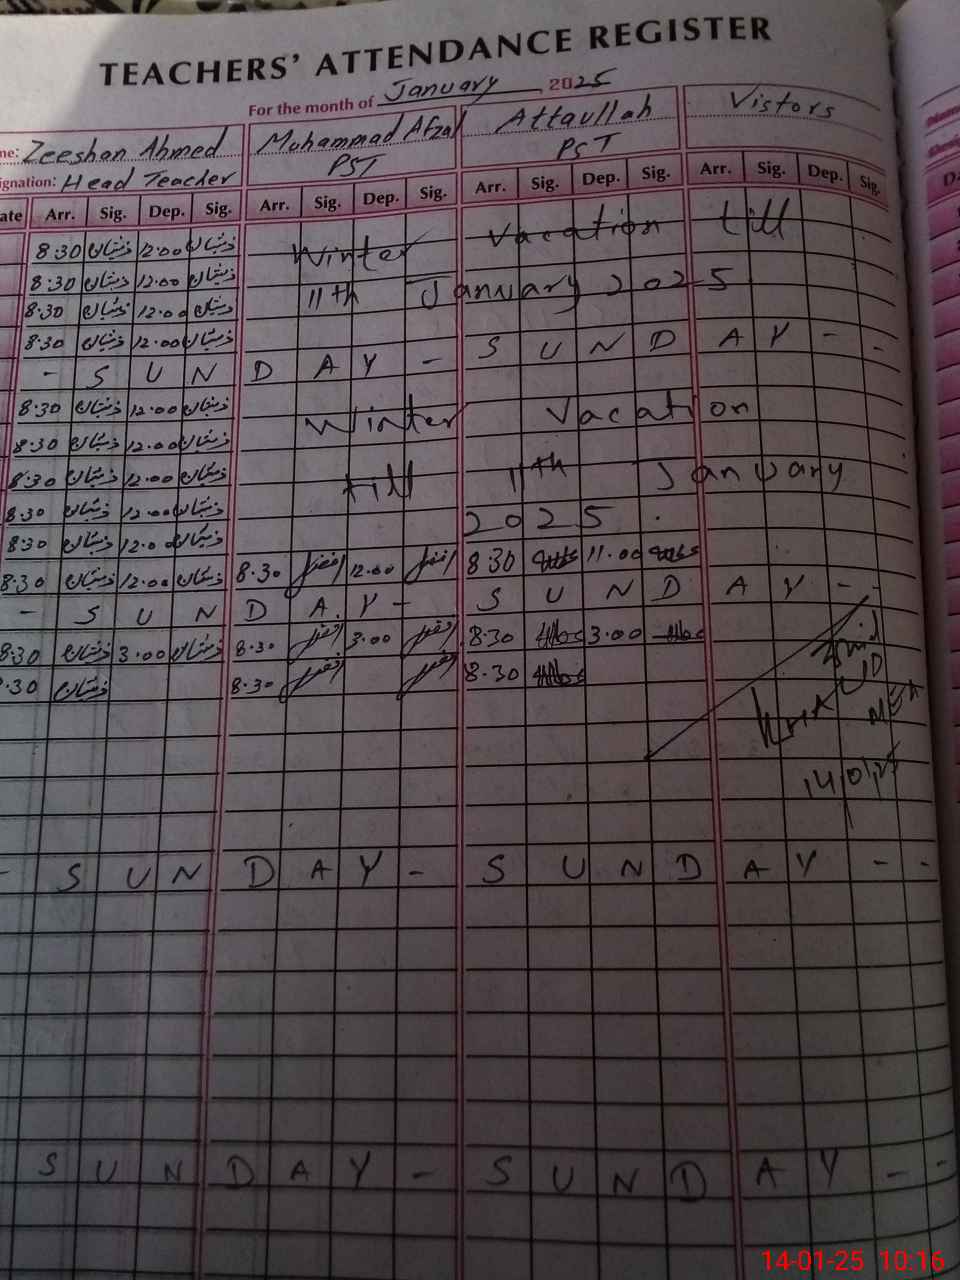 TEACHERS' ATTENDANCE REGISTER
For the month of January, 2025
me: Zeeshan Ahmed Muhammad Afzal Attaullah Vistors
signation: Head Teacher PST PST
ate Arr. Sig. Dep. Sig. Arr. Sig. Dep. Sig. Arr. Sig. Dep. Sig. Arr. Sig. Dep. Sig.
8:30 ذیشان 12:00 ذیشان Winter Vacation till
8:30 ذیشان 12:00 ذیشان 11th January 2025
8:30 ذیشان 12:00 ذیشان
8:30 ذیشان 12:00 ذیشان
- S U N D A Y - S U N D A Y - -
8:30 ذیشان 12:00 ذیشان Winter Vacation
8:30 ذیشان 12:00 ذیشان
8:30 ذیشان 12:00 ذیشان till 11th January
8:30 ذیشان 12:00 ذیشان 2025.
8:30 ذیشان 12:0 ذیشان
8:30 ذیشان 12:00 ذیشان 8:30 افضل 12:00 افضل 8:30 11:00
- S U N D A Y - S U N D A Y - -
8:30 ذیشان 3:00 ذیشان 8:30 افضل 3:00 افضل 8:30 3:00
:30 ذیشان 8:30 افضل افضل 8:30
MEA
14/01/25
- S U N D A Y - S U N D A Y - -
S U N D A Y - S U N D A Y - -
14-01-25 10:16